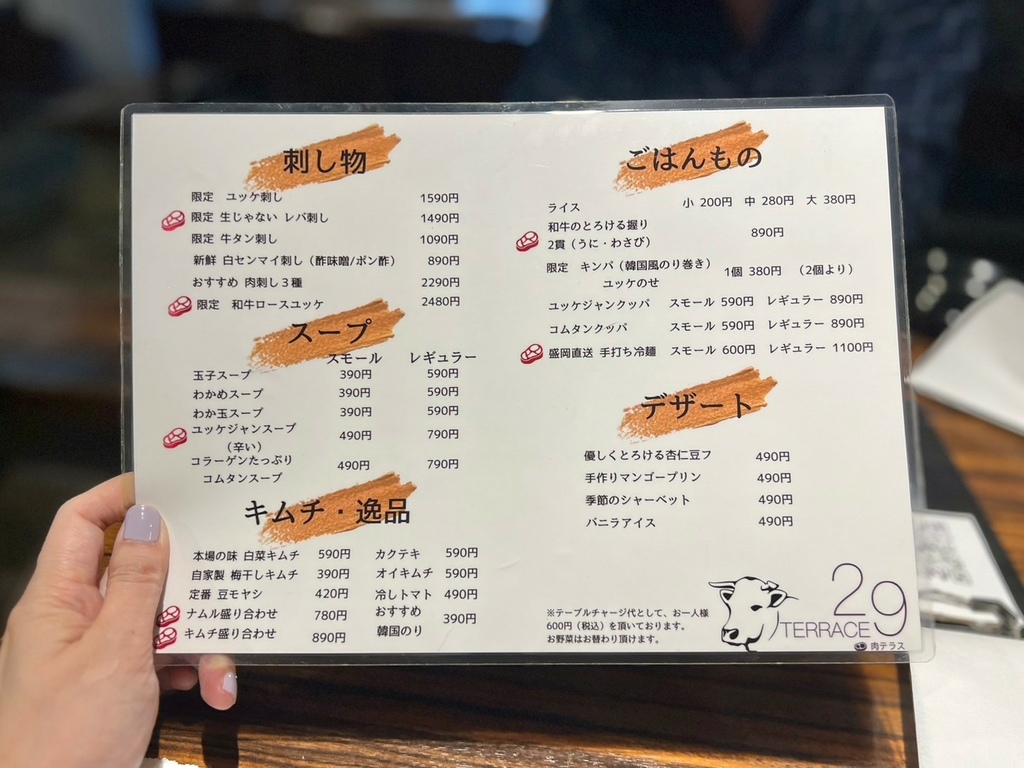 刺し物
限定 ユッケ刺し 1590円
限定 生じゃない レバ刺し 1490円
限定 牛タン刺し 1090円
新鮮 白センマイ刺し（酢味噌/ポン酢） 890円
おすすめ 肉刺し３種 2290円
限定 和牛ロースユッケ 2480円
スープ
スモール レギュラー
玉子スープ 390円 590円
わかめスープ 390円 590円
わか玉スープ 390円 590円
ユッケジャンスープ
（辛い） 490円 790円
コラーゲンたっぷり
コムタンスープ 490円 790円
キムチ・逸品
本場の味 白菜キムチ 590円 カクテキ 590円
自家製 梅干しキムチ 390円 オイキムチ 590円
定番 豆モヤシ 420円 冷しトマト 490円
ナムル盛り合わせ 780円 おすすめ
キムチ盛り合わせ 890円 韓国のり 390円
ごはんもの
ライス 小 200円 中 280円 大 380円
和牛のとろける握り
2貫（うに・わさび） 890円
限定 キンパ（韓国風のり巻き） 1個 380円 （2個より）
ユッケのせ
ユッケジャンクッパ スモール 590円 レギュラー 890円
コムタンクッパ スモール 590円 レギュラー 890円
盛岡直送 手打ち冷麺 スモール 600円 レギュラー 1100円
デザート
優しくとろける杏仁豆フ 490円
手作りマンゴープリン 490円
季節のシャーベット 490円
バニラアイス 490円
※テーブルチャージ代として、お一人様
600円（税込）を頂いております。
お野菜はお替わり頂けます。
29
TERRACE
肉テラス